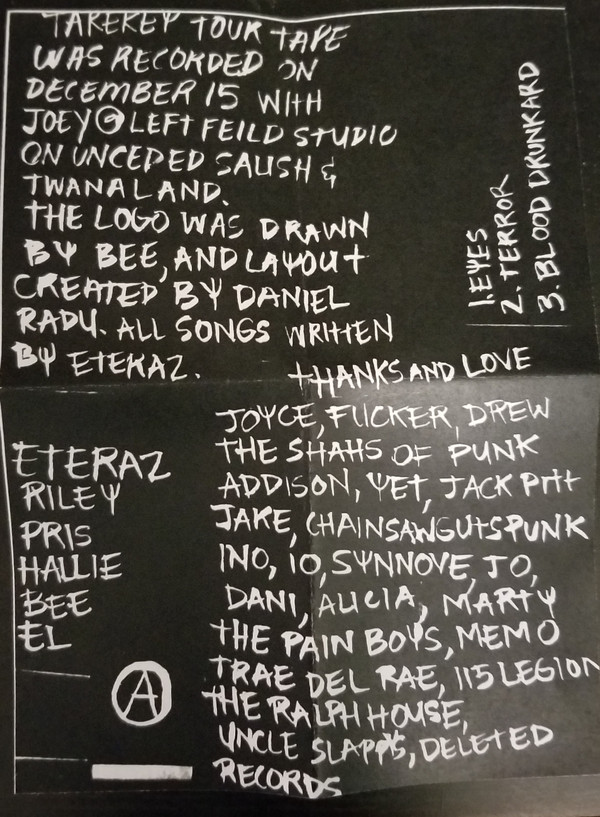 TAREKEY TOUR TAPE
WAS RECORDED ON
DECEMBER 15 WITH
JOEY @ LEFT FEILD STUDIO
ON UNCEDED SALISH &
TWANA LAND.
THE LOGO WAS DRAWN
BY BEE, AND LAYOUT
CREATED BY DANIEL
RADU. ALL SONGS WRITTEN
BY ETERAZ.
1. EYES
2. TERROR
3. BLOOD DRUNKARD
THANKS AND LOVE
JOYCE, FUCKER, DREW
THE SHAHS OF PUNK
ADDISON, YET, JACK PITT
JAKE, CHAINSAWGUTSPUNK
INO, IO, SYNNOVE, JO,
DANI, ALICIA, MARTY
THE PAIN BOYS, MEMO
TRAE DEL RAE, 115 LEGION
THE RALPH HOUSE,
UNCLE SLAPPS, DELETED
RECORDS
ETERAZ
RILEY
PRIS
HALLIE
BEE
EL
A